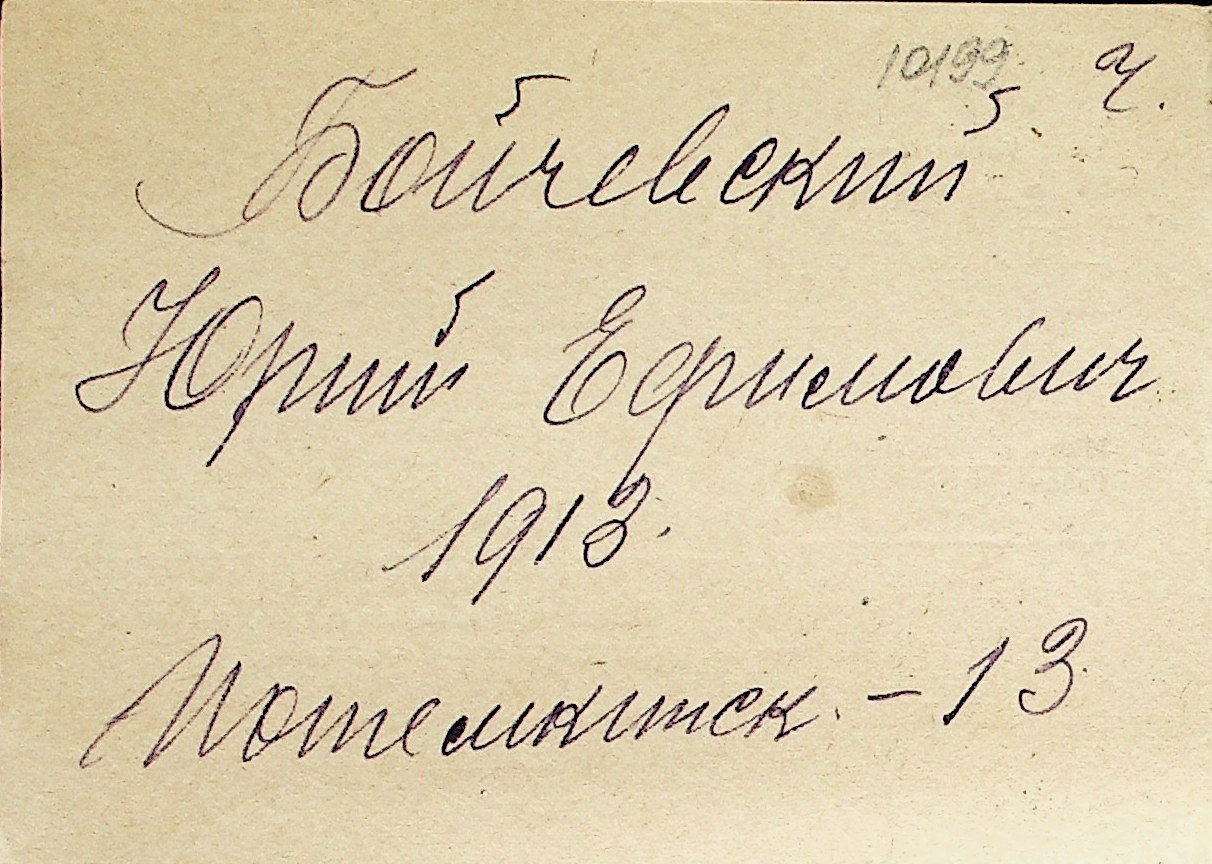 10199 Ч.
Бойчевский
Юрий Ефимович
1913.
Потемкинск. – 13